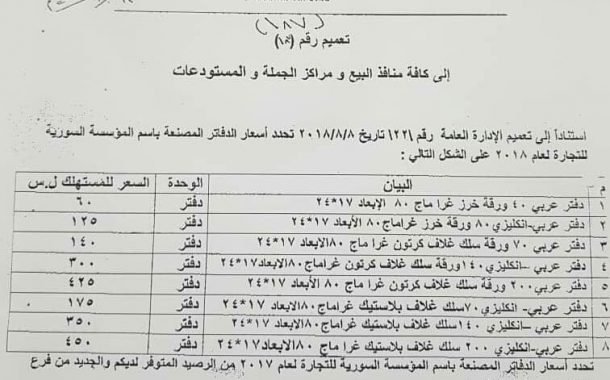 (١٨٧)
تعميم رقم (١٨)
إلى كافة منافذ البيع و مراكز الجملة و المستودعات
استناداً إلى تعميم الإدارة العامة رقم ٢٢١١ تاريخ ٢٠١٨/٨/٨ تحدد أسعار الدفاتر المصنعة باسم المؤسسة السورية
للتجارة لعام ٢٠١٨ على الشكل التالي :
م البيان الوحدة السعر للمستهلك ل.س
١ دفتر عربي ٤٠ ورقة خرز غرا ماج ٨٠ الإبعاد ١٧*٢٤ دفتر ٦٠
٢ دفتر عربي-انكليزي ٨٠ ورقة خرز غراماج ٨٠ الأبعاد ١٧*٢٤ دفتر ١٢٥
٣ دفتر عربي ٧٠ ورقة سلك غلاف كرتون غرا ماج ٨٠الابعاد ١٧*٢٤ دفتر ١٤٠
٤ دفتر عربي –انكليزي ١٤٠ورقة سلك غلاف كرتون غراماج٨٠الابعاد ١٧*٢٤ دفتر ٣٠٠
٥ دفتر عربي ٢٠٠ ورقة سلك غلاف كرتون غرا ماج ٨٠ الأبعاد دفتر ٤٢٥
٦ دفتر عربي- انكليزي ٧٠سلك غلاف بلاستيك غراماج٨٠الابعاد ١٧*٢٤ دفتر ١٧٥
٧ دفتر عربي –انكليزي ١٤٠ سلك غلاف بلاستيك غراماج٨٠الابعاد ١٧*٢٤ دفتر ٣٥٠
٨ دفتر عربي –انكليزي ٢٠٠ سلك غلاف بلاستيك غرا ماج ٨٠الابعاد ١٧*٢٤ دفتر ٤٥٠
تحدد أسعار الدفاتر المصنعة باسم المؤسسة السورية للتجارة لعام ٢٠١٧ من الرصيد المتوفر لديكم والجديد من فرع